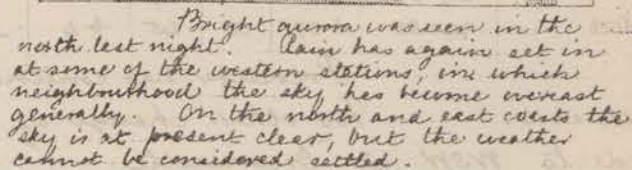 Bright aurora was seen in the
north last night. Rain has again set in
at some of the western stations, in which
neighbourhood the sky has become overcast
generally. On the north and east coasts the
sky is at present clear, but the weather
cannot be considered settled.